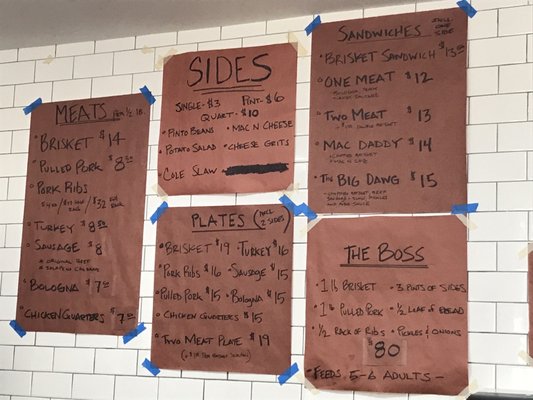 MEATS PER 1/2 LB.
• BRISKET $14
• PULLED PORK $8.50
• PORK RIBS
• TURKEY $8.50
• SAUSAGE $8
* ORIGINAL BEEF
* JALAPEÑO CHEDDAR
• BOLOGNA $7.50
• CHICKEN QUARTERS $7.50
SIDES
SINGLE - $3 PINT - $6
QUART - $10
• PINTO BEANS • MAC N CHEESE
• POTATO SALAD • CHEESE GRITS
• COLE SLAW
PLATES (INCL. 2 SIDES)
• BRISKET $19 • TURKEY $16
• PORK RIBS $16 • SAUSAGE $15
• PULLED PORK $15 • BOLOGNA $15
• CHICKEN QUARTERS $15
• TWO MEAT PLATE $19
SANDWICHES INCL. ONE SIDE
• BRISKET SANDWICH $13.50
• ONE MEAT $12
• TWO MEAT $13
• MAC DADDY $14
* CHOPPED BRISKET
* MAC N CHZ
• THE BIG DAWG $15
THE BOSS
• 1 lb BRISKET • 3 PINTS OF SIDES
• 1 lb PULLED PORK • 1/2 LOAF OF BREAD
• 1/2 RACK OF RIBS • PICKLES & ONIONS
$80
FEEDS 5-6 ADULTS -